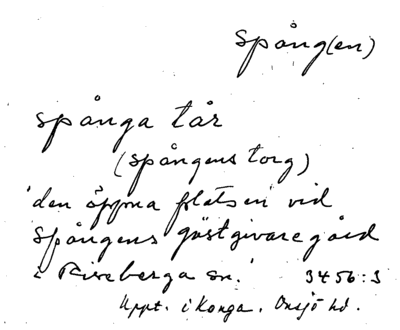 Spång(en)
spånga tår
(spångens torg)
'den öppna platsen vid
Spångens gästgivaregård
i Riseberga sn.'
3456:3
Uppt. i Konga. Onsjö hd.